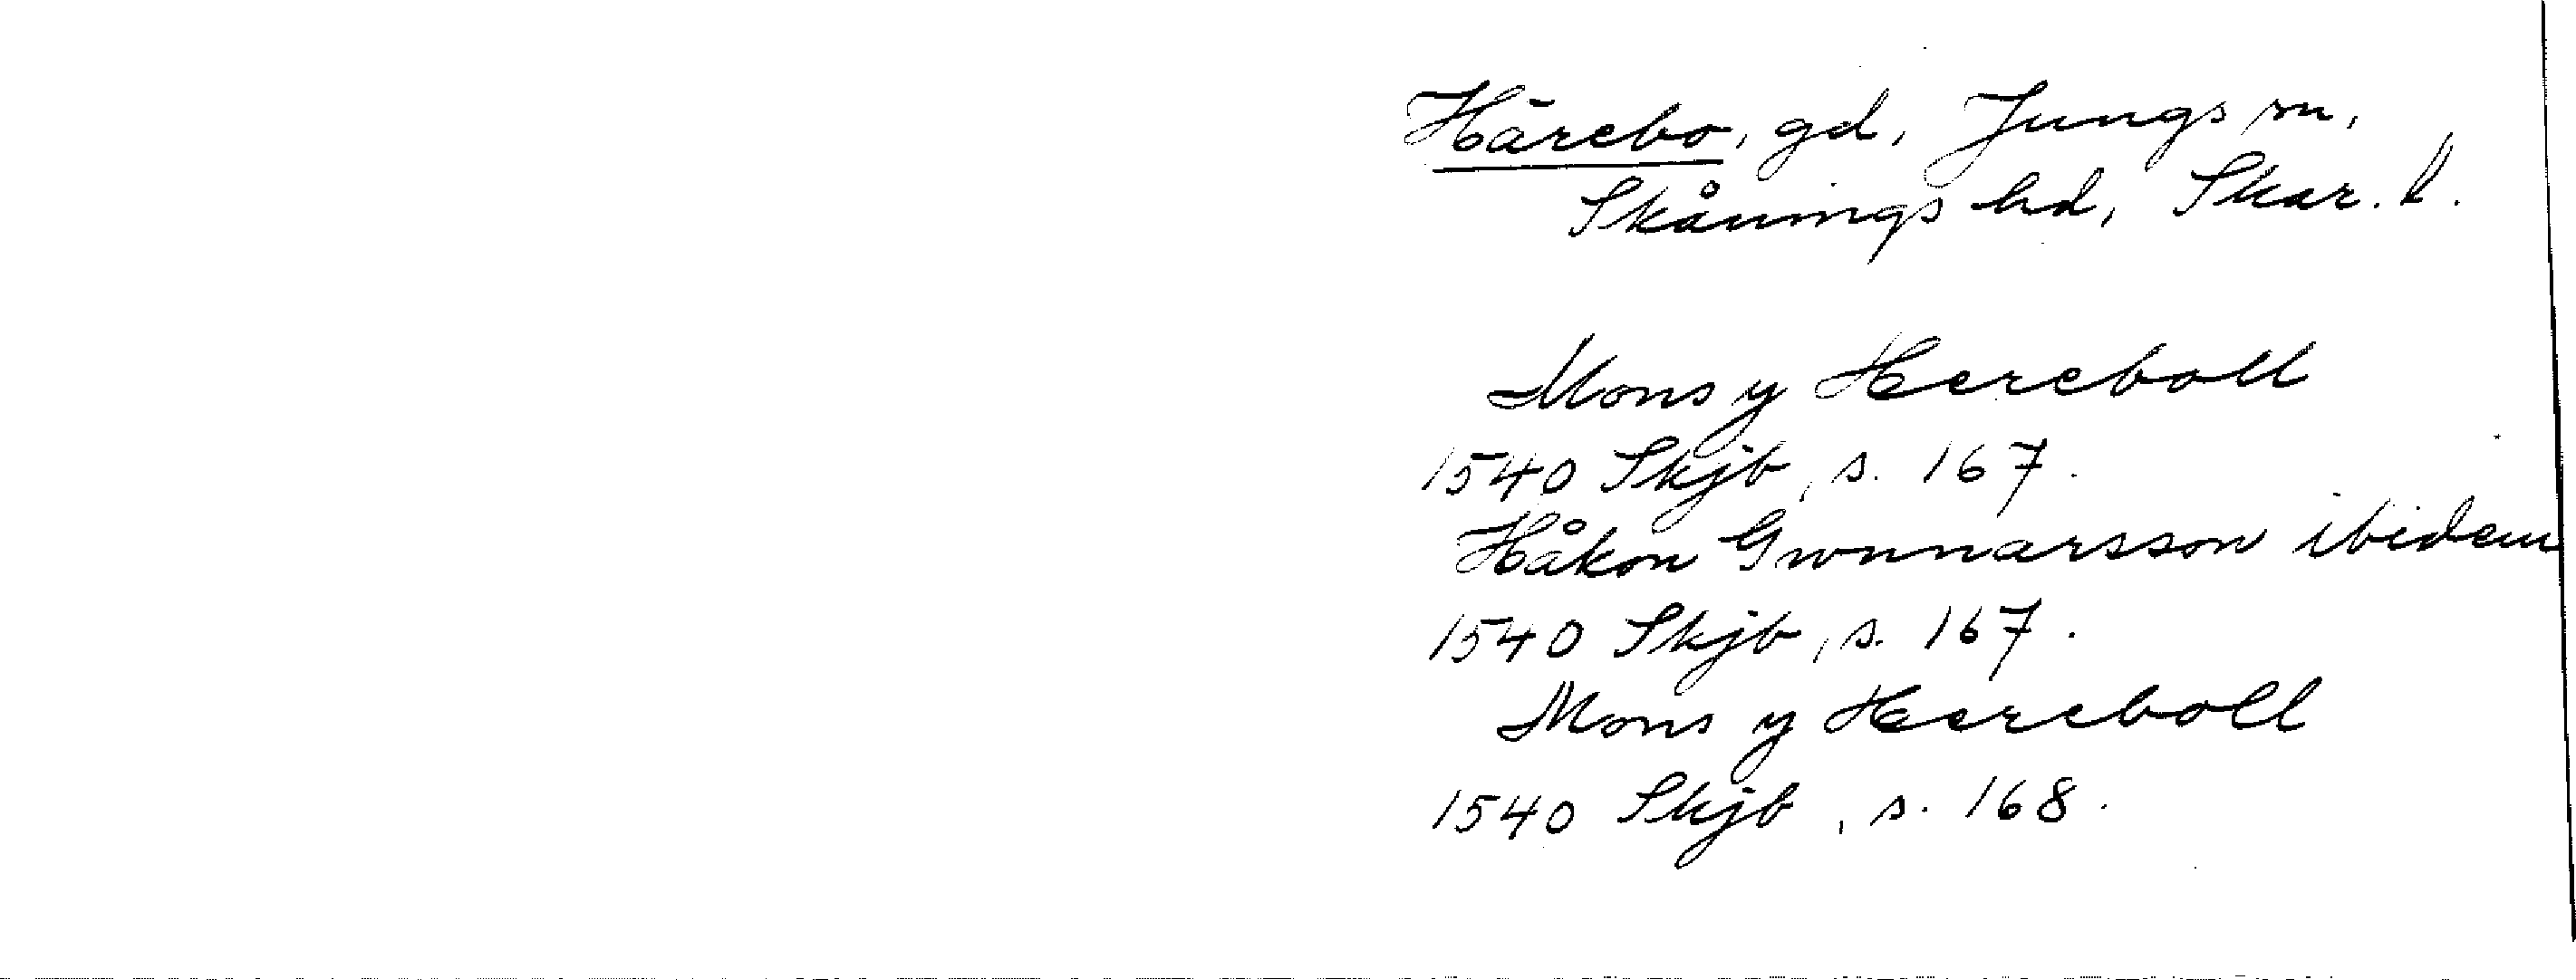 Härebo, gd, Jungs sn,
Skånings hd, Skar. l.
Mons y Hereboll
1540 Skjb, s. 167.
Håkon Gwnnarsson ibidem
1540 Skjb, s. 167.
Mons y Hereboll
1540 Skjb, s. 168.